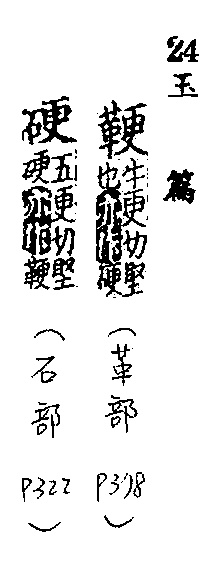 24
玉篇
鞕牛更切堅
也亦作硬
(革部 P398)
硬五更切堅
硬亦作鞕
(石部 P322)